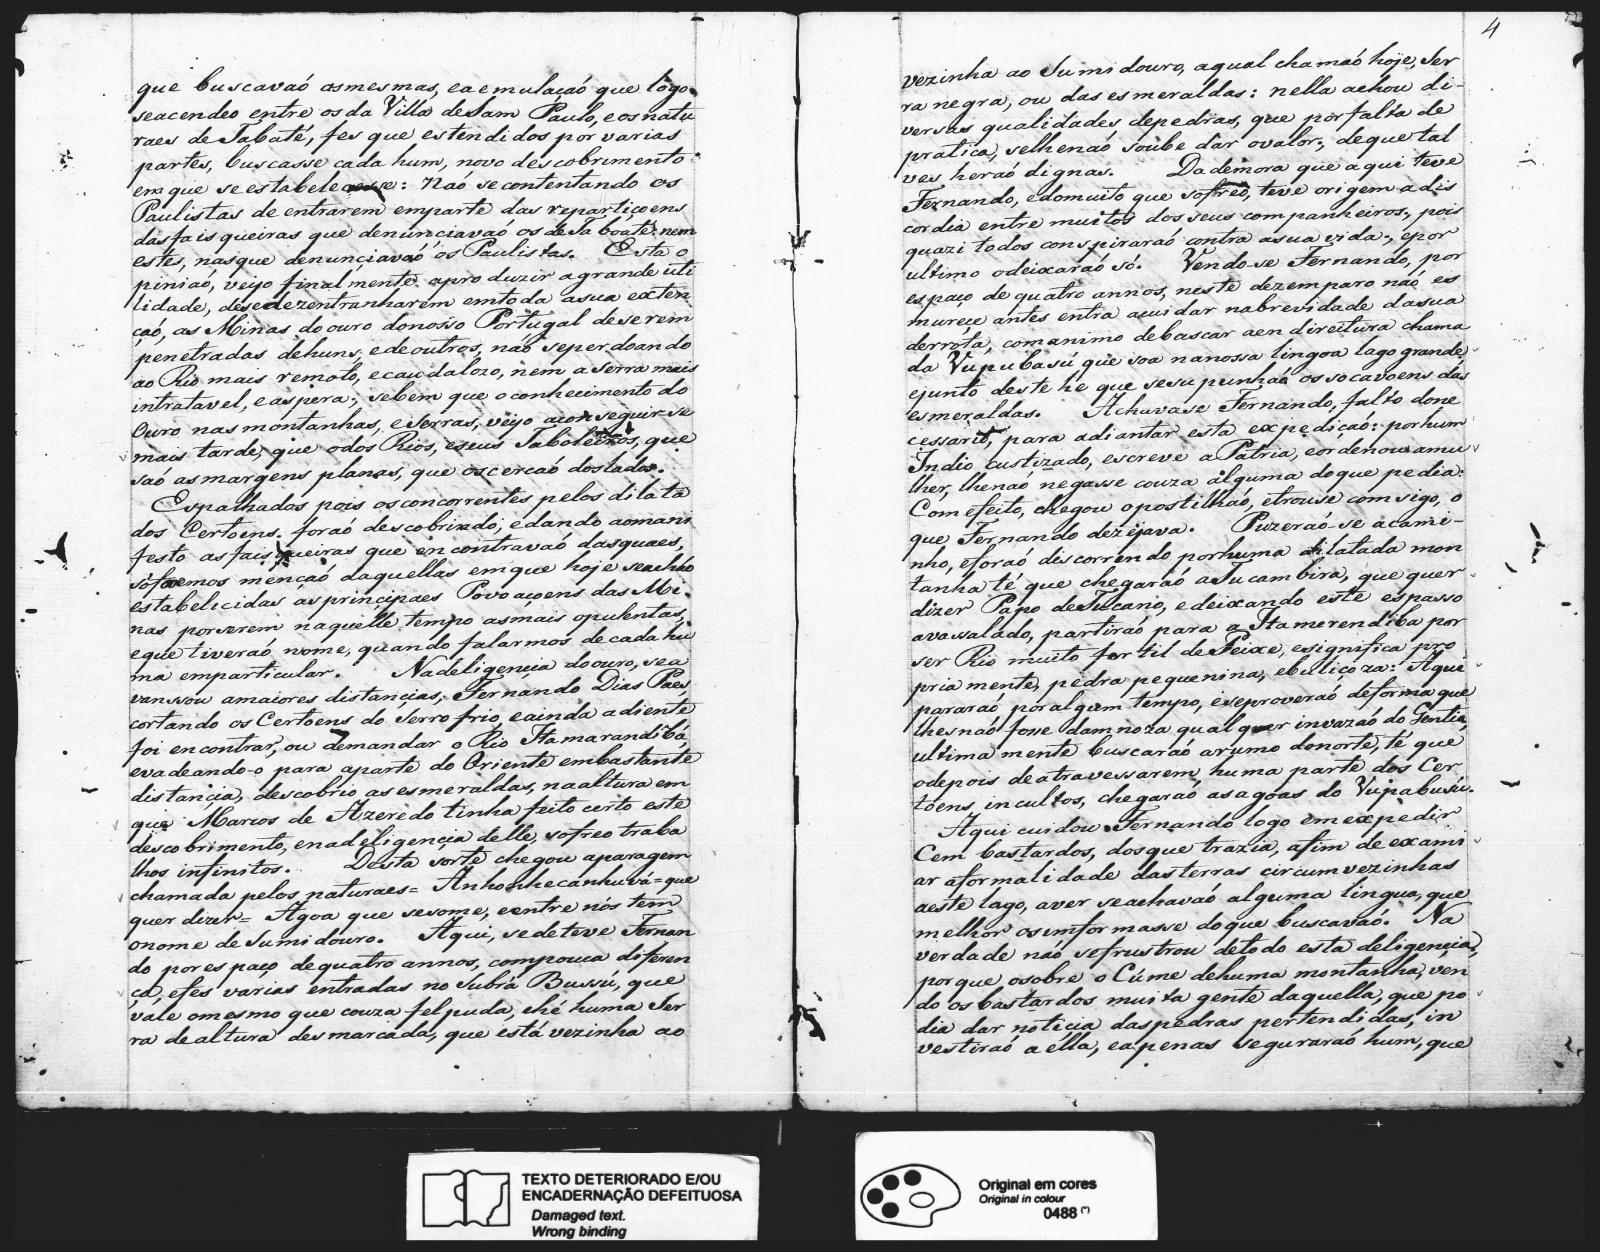 que buscavaó as mesmas, e a emulaçaó que logo
se acendeo entre os da Villa de Sam Paulo, e os natu
raes de Tabaté, fes que estendidos por varias
partes, buscasse cada hum, novo descobrimento
em que se estabelecesse: Naó se contentando os
Paulistas de entrarem em parte das repartiçoens
das faisqueiras que denunciavaó os de Taboaté: nem
estes, nas que denunciavaó os Paulistas. Esta o
piniaó, veijo finalmente apro duzir a grande uti
lidade, de se dezentranharem em toda a sua exten
çaó, as Minas do ouro do nosso Portugal de serem
penetradas de huns, e de outros, naó se perdoando
ao Rio mais remoto, e caudalozo, nem a Serra mais
intratavel, e aspera; se bem que o conhecimento do
Ouro nas montanhas, e Serras, veijo a conseguir-se
mais tarde, que o dos Rios, e seus Taboleiros, que
saó as margens planas, que os cercaó dos lados.
Espalhados pois os concorrentes pelos dilata
dos Certoens. foraó descobrindo, e dando ao mani
festo as faisqueiras que encontravaó das quaes,
só faremos mençaó daquellas em que hoje se achaó
estabelicidas as principaes Povoaçoens das Mi-
nas por serem naquelle tempo as mais opulentas,
e que tiveraó nome, quando falarmos de cada hu
ma em particular. Na deligencia do ouro, se a
vansou a maiores distancias, Fernando Dias Paes,
cortando os Certoens do Serro frio, e ainda adiente
foi encontrar, ou demandar o Rio Itamarandiba,
e vadeando-o para a parte do Oriente em bastante
distancia, descobrio as esmeraldas, na altura em
que Marcos de Azeredo tinha feito certo este
descobrimento, e na deligencia delle, sofreo traba
lhos infinitos. Desta sorte chegou a paragem
chamada pelos naturaes = Anhonhecanhuvá = que
quer dizer = Agoa que se some, e entre nós tem
o nome de Sumidouro. Aqui, se deteve Fernan
do por espaço de quatro annos, com pouca diferen
ça, e fes varias entradas no Subrá Bussú, que
vale o mesmo que couza felpuda, e hé huma Ser
ra de altura desmarcada, que está vezinha ao
4
vezinha ao Sumidouro, a qual chamaó hoje, Ser
ra negra, ou das esmeraldas: nella achou di-
versas qualidades de pedras, que por falta de
pratica, se lhe naó soube dar o valor, de que tal
ves heraó dignas. Da demora que aqui teve
Fernando, e do muito que sofreo, teve origem a dis
cordia entre muitos dos seus companheiros, pois
quazi todos conspiraraó contra a sua vida, e por
ultimo o deixaraó só. Vendo-se Fernando, por
espaço de quatro annos, neste dezemparo naó es
murece antes entra a cuidar na brevidade da sua
derrota, com animo de buscar a en direitura chama
da Vupubasú que soa na nossa lingoa lago grande,
e junto deste hé que se supunhaó os socavoens das
esmeraldas. Achavase Fernando, falto do ne
cessario, para adiantar esta expediçaó: por hum
Indio custizado, escreve a Patria, e ordenou a mu
lher, lhe naó negasse couza alguma do que pedia:
Com efeito, chegou o postilhaó, e trouse comsigo, o
que Fernando dezejava. Puzeraó-se a cami-
nho, e foraó discorrendo por huma dilatada mon
tanha té que chegaraó a Tucambira, que quer
dizer Papo de Tucano, e deixando este espasso
avassalado, partiraó para a Itamerendiba por
ser Rio muito fertil de Peixe, e significa pro
priamente, pedra pequenina, e buliçoza: Aqui
pararaó por algum tempo, e se proveraó de forma que
lhes naó fosse damnoza qualquer invazaó do Gentio,
ultimamente buscaraó a rumo do norte, té que
o depois de atravessarem, huma parte dos Cer
toens, incultos, chegaraó as agoas do Vupabusú.
Aqui cuidou Fernando logo em expedir
Cem bastardos, dos que trazia, afim de exami
ar a formalidade das terras circumvezinhas
a este lago, a ver se achavaó alguma lingua, que
melhor os emformasse do que buscavaó. Na
verdade naó se frustrou de todo esta deligencia,
porque o sobre o Cúme de huma montanha, ven
do os bastardos muita gente daquella, que po
dia dar noticia das pedras pertendidas, in
vestiraó a ella, e apenas seguraraó hum, que
TEXTO DETERIORADO E/OU
ENCADERNAÇÃO DEFEITUOSA
Damaged text.
Wrong binding
Original em cores
Original in colour
0488 (*)